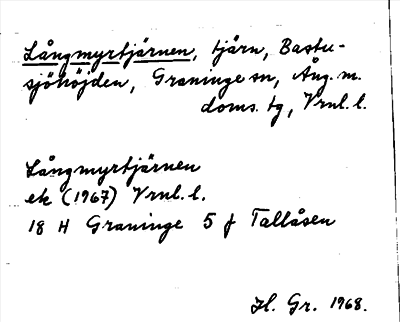 Långmyrtjärnen, tjärn, Bastu-
sjöhöjden, Graninge sn, Ång. m.
doms. tg, Vrnl. l.
Långmyrtjärnen
ek (1967) Vrnl. l.
18 H Graninge 5 f Tallåsen
H. Gr. 1968.